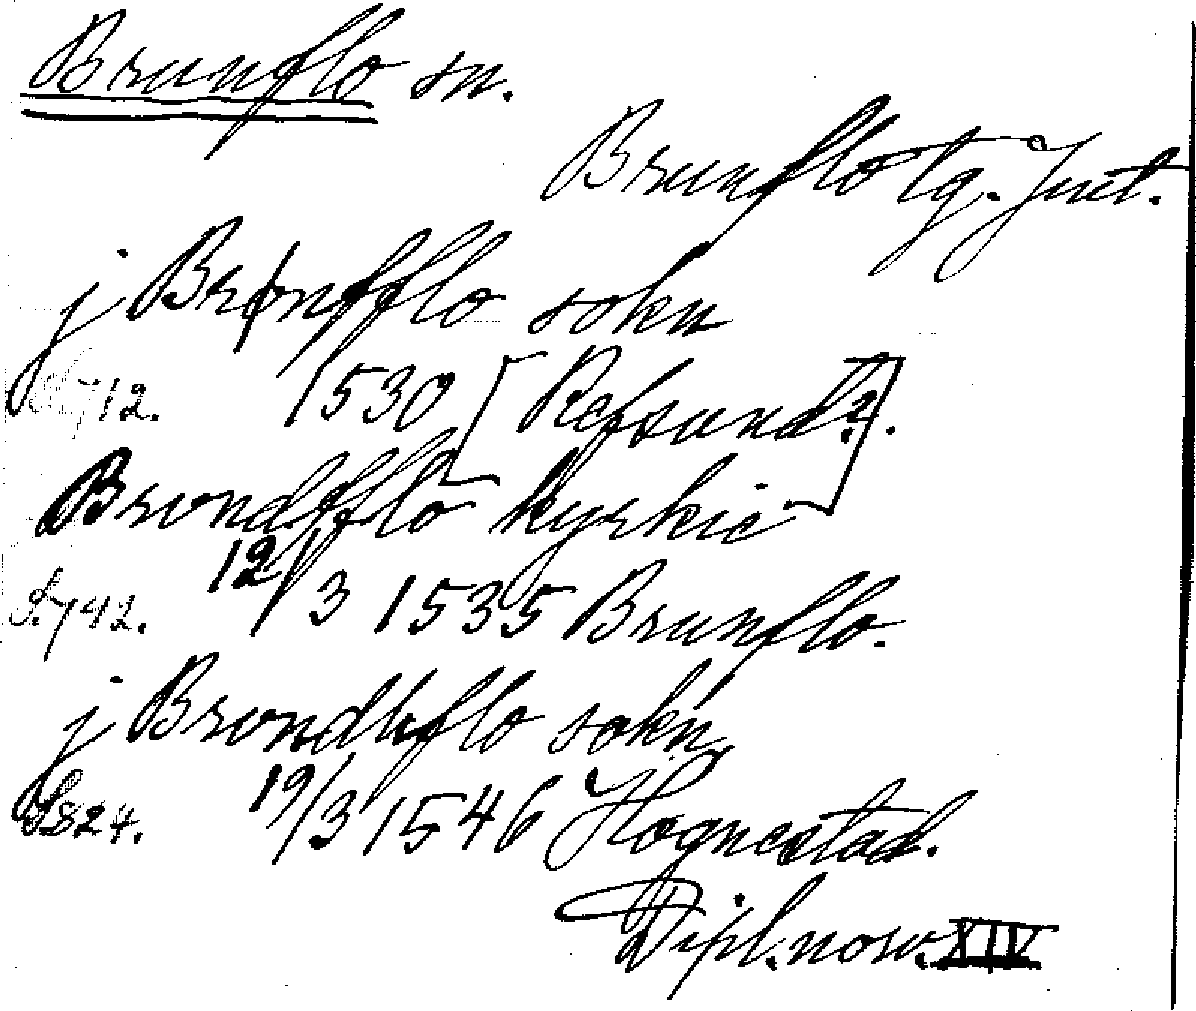 Brunflo sn.
Brunflo tg. Jmt.
j Brønfflo sokn
S. 712. 1530 [Refsund?].
Brondfflo kyrkie
S. 742. 12/3 1535 Brunflo.
j Brondhflo sokn,
S. 824. 19/3 1546 Hognestad.
Dipl. norv. XIV